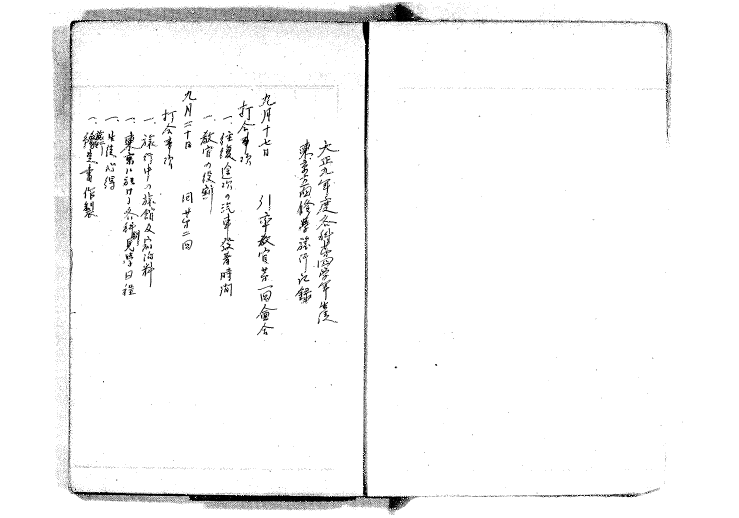 大正九年度各科第四学年生徒
東京方面修学旅行記録
九月十七日　引率教官第一回会合
打合事項
一、往復途次の汽車発着時間
一、教官の役割
九月二十日　同　第二回
打合事項
一、旅行中の旅館及宿泊料
一、東京に於ける各科別見学日程
一、生徒心得
一、 書作製